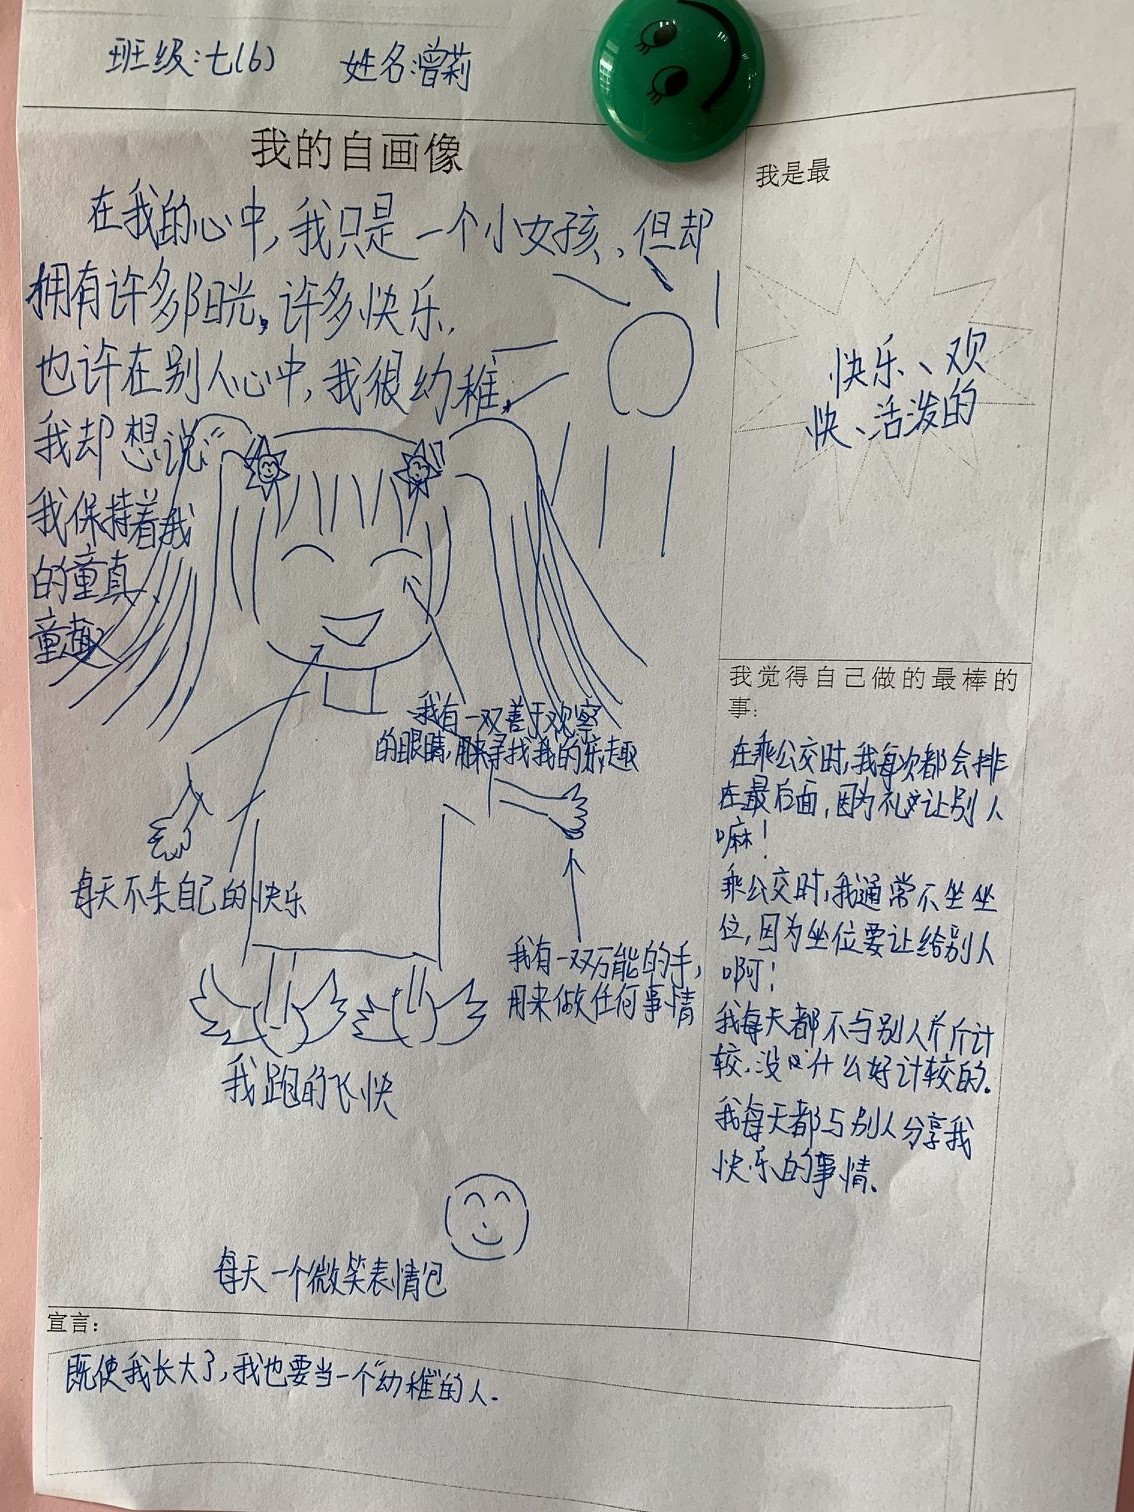 班级:七(6) 姓名:曾莉
我的自画像
在我的心中,我只是一个小女孩、但却
拥有许多阳光,许多快乐.
也许在别人心中,我很幼稚.
我却想说:“
我保持着我
的童真、
童趣”
我有一双善于观察
的眼睛,用来寻找我的乐趣
每天不失自己的快乐
我有一双万能的手,
用来做任何事情
我跑的飞快
每天一个微笑表情包
我是最
快乐、欢
快、活泼的
我觉得自己做的最棒的
事:
在乘公交时,我每次都会排
在最后面,因为礼让别人
嘛!
乘公交时,我通常不坐坐
位,因为坐位要让给别人
啊!
我每天都不与别人斤斤计
较.没什么好计较的.
我每天都与别人分享我
快乐的事情.
宣言:
既使我长大了,我也要当一个“幼稚”的人.